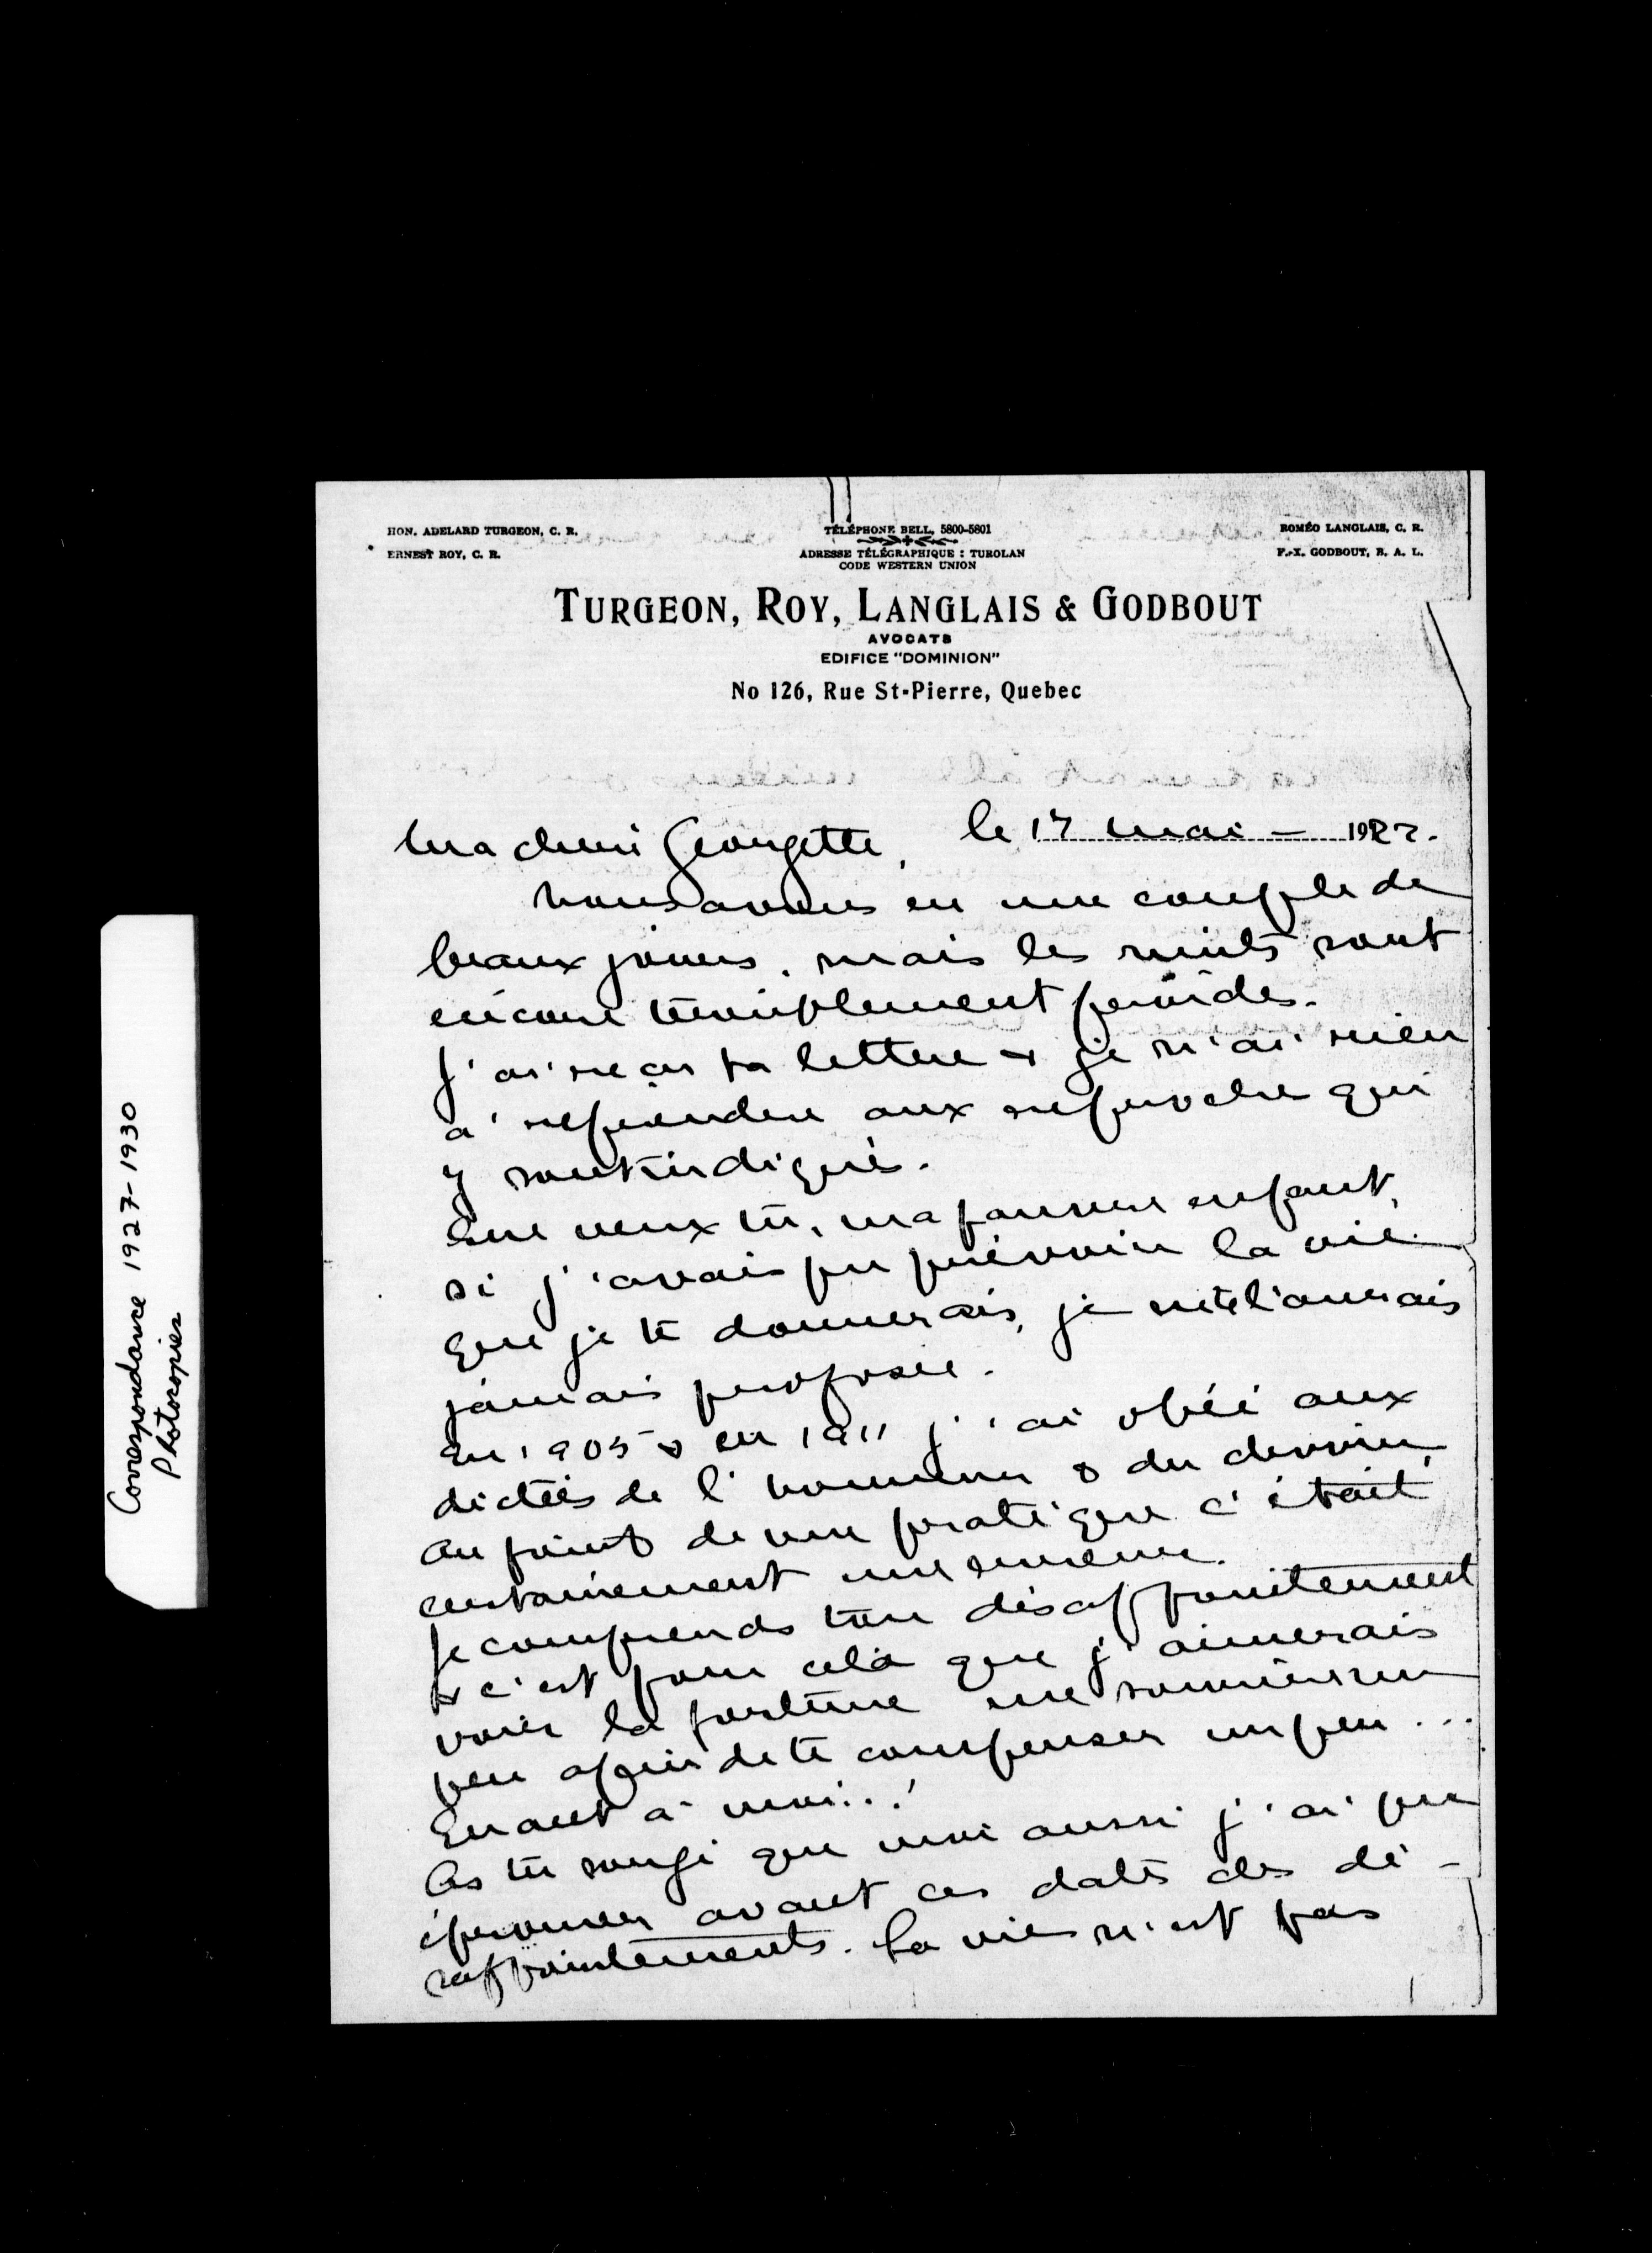 Correspondance 1927-1930
Photocopies
HON. ADELARD TURGEON, C. R.
ERNEST ROY, C. R.
TÉLÉPHONE BELL, 5800-5801
ADRESSE TÉLÉGRAPHIQUE : TUROLAN
CODE WESTERN UNION
ROMÉO LANGLAIS, C. R.
F.-X. GODBOUT, B. A. L.
TURGEON, ROY, LANGLAIS & GODBOUT
AVOCATS
EDIFICE "DOMINION"
No 126, Rue St-Pierre, Quebec
le 17 mai - 1927.
Ma cheri Georgette,
nous avons eu une couple de
beaux jours, mais les nuits sont
encore terriblement froides.
J'ai reçu ta lettre & je n'ai rien
a reprendre aux reproche qui
y sont indiqués.
Que veux tu, ma pauvre enfant,
si j'avais pu prévoir la vie
que je te donnerais, je ne te l'aurais
jamais proposée.
En 1905 & en 1911 j'ai obéi aux
dictées de l'honneur & du devoir,
au point de vue pratique c'était
certainement une erreur.
Je comprends ton désappointement
& c'est pour cela que j'aimerais
voir la fortune me sourire un
peu afin de te compenser un peu ...
Quant à moi...!
As tu songé que moi aussi j'ai pu
éprouver avant ces dates des dé-
sappointements. La vie n'est pas